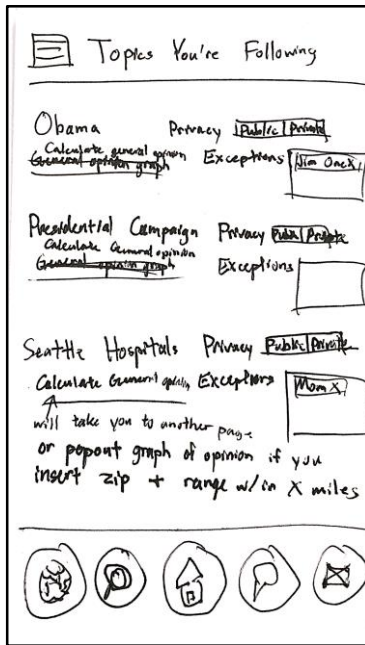 Topics You're Following
Obama Privacy Public Private
Calculate general opinion
General opinion graph Exceptions Jim One X
Presidential Campaign Privacy Public Private
Calculate General opinion
General opinion graph Exceptions
Seattle Hospitals Privacy Public Private
Calculate General opinion Exceptions Mom X
will take you to another page
or popout graph of opinion if you
insert zip + range w/in X miles